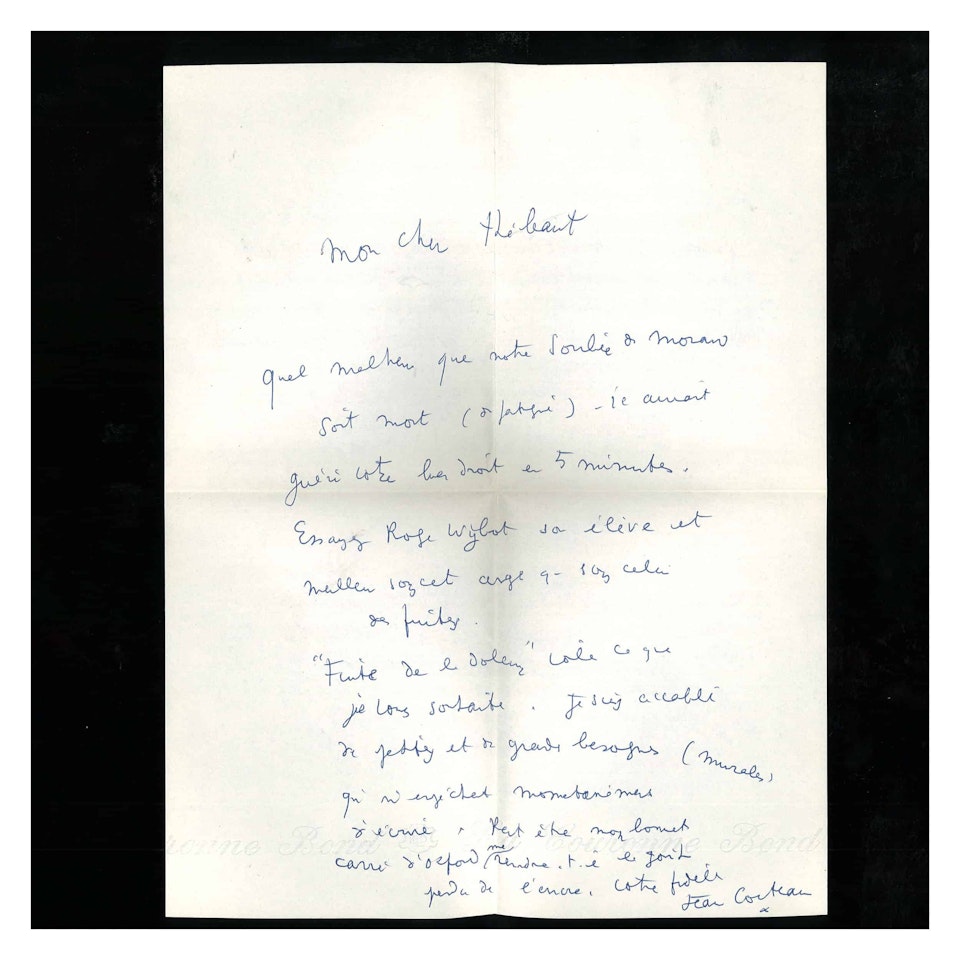 Mon cher Thébaut
Quel malheur que notre Soulié de Morant
soit mort (de fatigue) - il aurait
guéri votre bras droit en 5 minutes.
Essayez Roger Wybot son élève et
meilleur cet ange que celui
des fuites.
"Fuite de la douleur" voilà ce que
je vous souhaite. Je suis accablé
de petites et de grandes besognes (murales)
qui m'empêchent momentanément
d'écrire. Peut être mon bonnet
carré d'Oxford me rendra-t-il le goût
perdu de l'encre. Votre fidèle
Jean Cocteau
Couronne Bond